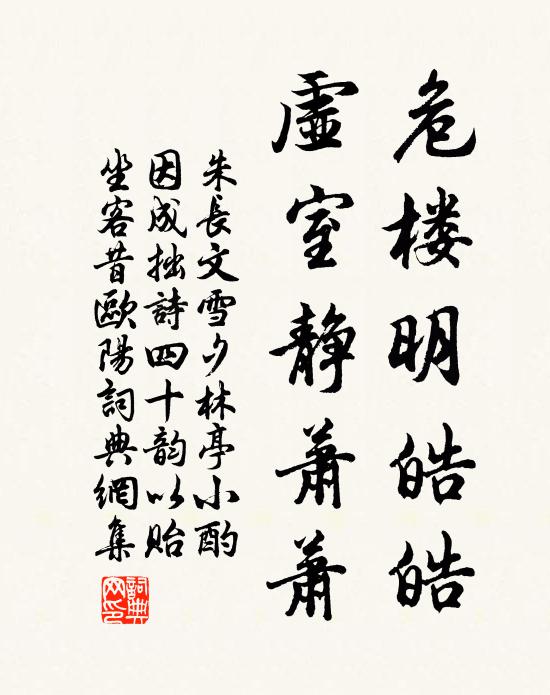 危楼明皓皓
虛室静蕭蕭
朱長文雪夕林亭小酌
因成拙詩四十韵以貽
坐客昔歐陽詞典網集
詞典
网印